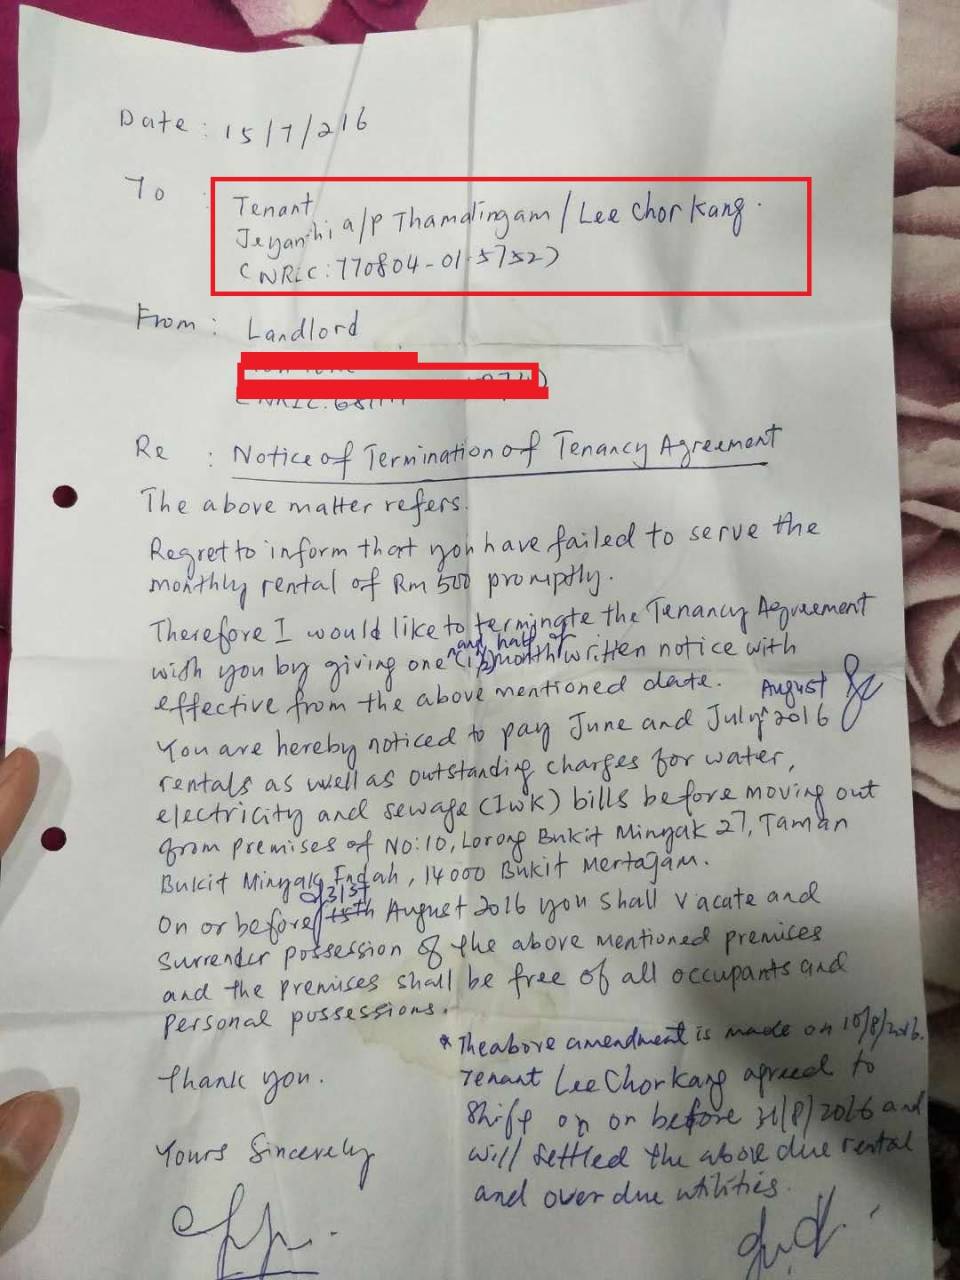 Date : 15/7/216
To : Tenant
Jeyanthi a/p Thamalingam / Lee Chor Kang.
(NRIC: 770804-01-5752)
From : Landlord
(NRIC: 681
Re : Notice of Termination of Tenancy Agreement
The above matter refers.
Regret to inform that you have failed to serve the
monthly rental of Rm 500 promptly.
Therefore I would like to terminate the Tenancy Agreement
and half
with you by giving one (1 1/2) month written notice with
effective from the above mentioned date.
August
You are hereby noticed to pay June and July 2016
rentals as well as outstanding charges for water,
electricity and sewage (IWK) bills before moving out
from premises of No: 10, Lorong Bukit Minyak 27, Taman
Bukit Minyak Indah, 14000 Bukit Mertajam.
31st
On or before 15th August 2016 you shall vacate and
surrender possession of the above mentioned premises
and the premises shall be free of all occupants and
personal pussessions.
* The above amendment is made on 10/8/2016.
Tenant Lee Chor Kang agreed to
shift on or before 31/8/2016 and
will settled the above due rental
and over due utilities.
Thank you.
Yours Sincerely